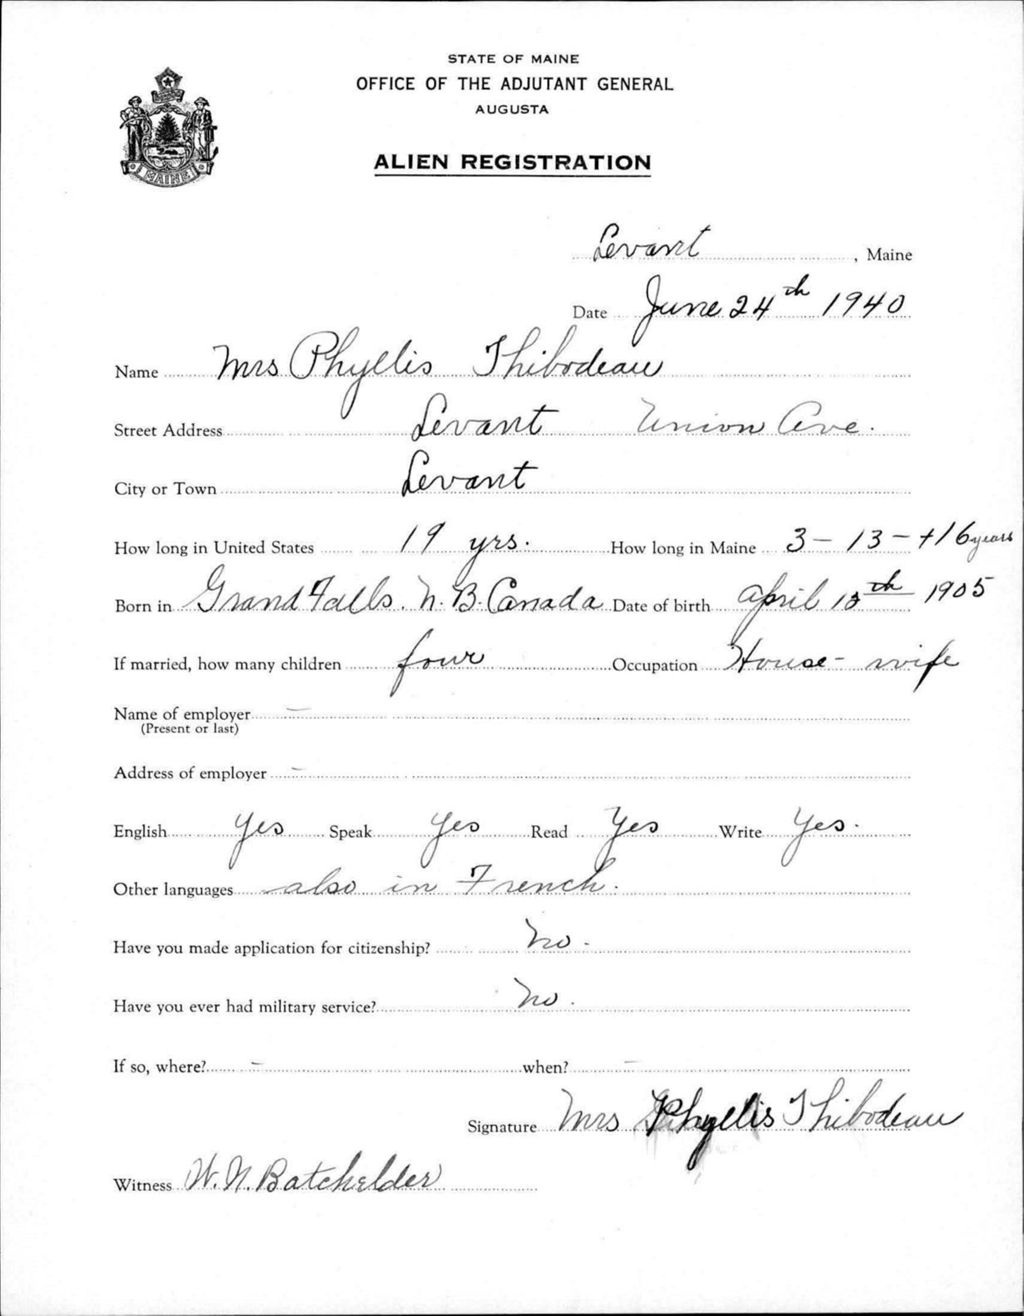 STATE OF MAINE
OFFICE OF THE ADJUTANT GENERAL
AUGUSTA
ALIEN REGISTRATION
MAINE
Levant, Maine
Date June 24th 1940
Name Mrs Phyllis Thibodeau
Street Address Levant Union Ave.
City or Town Levant
How long in United States 19 yrs. How long in Maine 3 - 13 - + 16 years
Born in Grand Falls. N. B. Canada Date of birth April th 1905
If married, how many children four Occupation House-wife
Name of employer -
(Present or last)
Address of employer -
English Yes Speak Yes Read Yes Write Yes.
Other languages also in French.
Have you made application for citizenship? No.
Have you ever had military service? No.
If so, where? - when? -
Signature Mrs Phyllis Thibodeau
Witness W. N. Batchelder